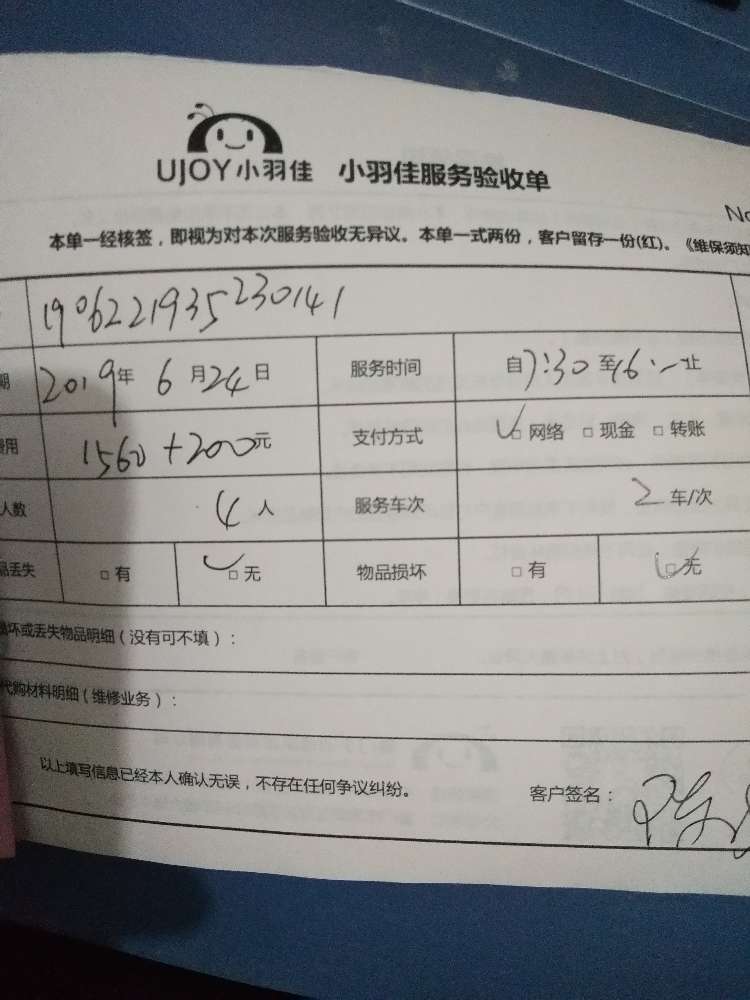 UJOY小羽佳 小羽佳服务验收单
No
本单一经核签，即视为对本次服务验收无异议。本单一式两份，客户留存一份(红)。《维保须知
1906221935230141
期 2019年 6月24日 服务时间 自7:30至16:-止
费用 1560+200元 支付方式 □ 网络 □ 现金 □ 转账
人数 4人 服务车次 2 车/次
品丢失 □ 有 □ 无 物品损坏 □ 有 □ 无
损坏或丢失物品明细（没有可不填）：
代购材料明细（维修业务）：
以上填写信息已经本人确认无误，不存在任何争议纠纷。 客户签名：